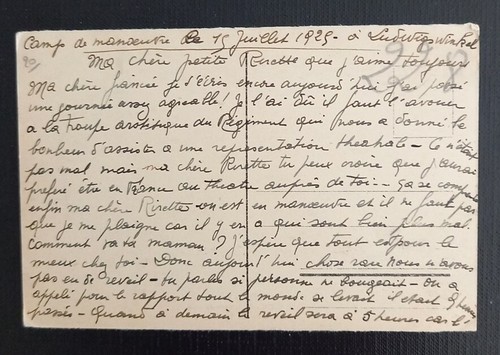 Camp de manœuvre le 15 Juillet 1929 - à Ludwigswinkel
Ma chère petite Rirette que j'aime toujours
Ma chère fiancée je t'écris encore aujourd'hui j'ai passé
une journée assez agréable! je l'ai dû il faut l'avouer
a la troupe artistique du Régiment qui nous a donné le
bonheur d'assister a une représentation théatrale - Ce n'était
pas mal mais ma chère Rirette tu peux croire que j'aurais
préféré être en France au théatre auprès de toi - Ça se comprend
enfin ma chère Rirette on est en manœuvre et il ne faut pas
que je me plaigne car il y en a qui sont bien plus mal.
Comment va ta maman? J'espère que tout est pour le
mieux chez toi - Donc aujourd'hui chose rare nous n'avons
pas eu de reveil - tu parles si personne ne bougeait - On a
appelé pour le rapport tout le monde se levait il était 9 heures
passés - Quand à demain le reveil sera à 5 heures car l'